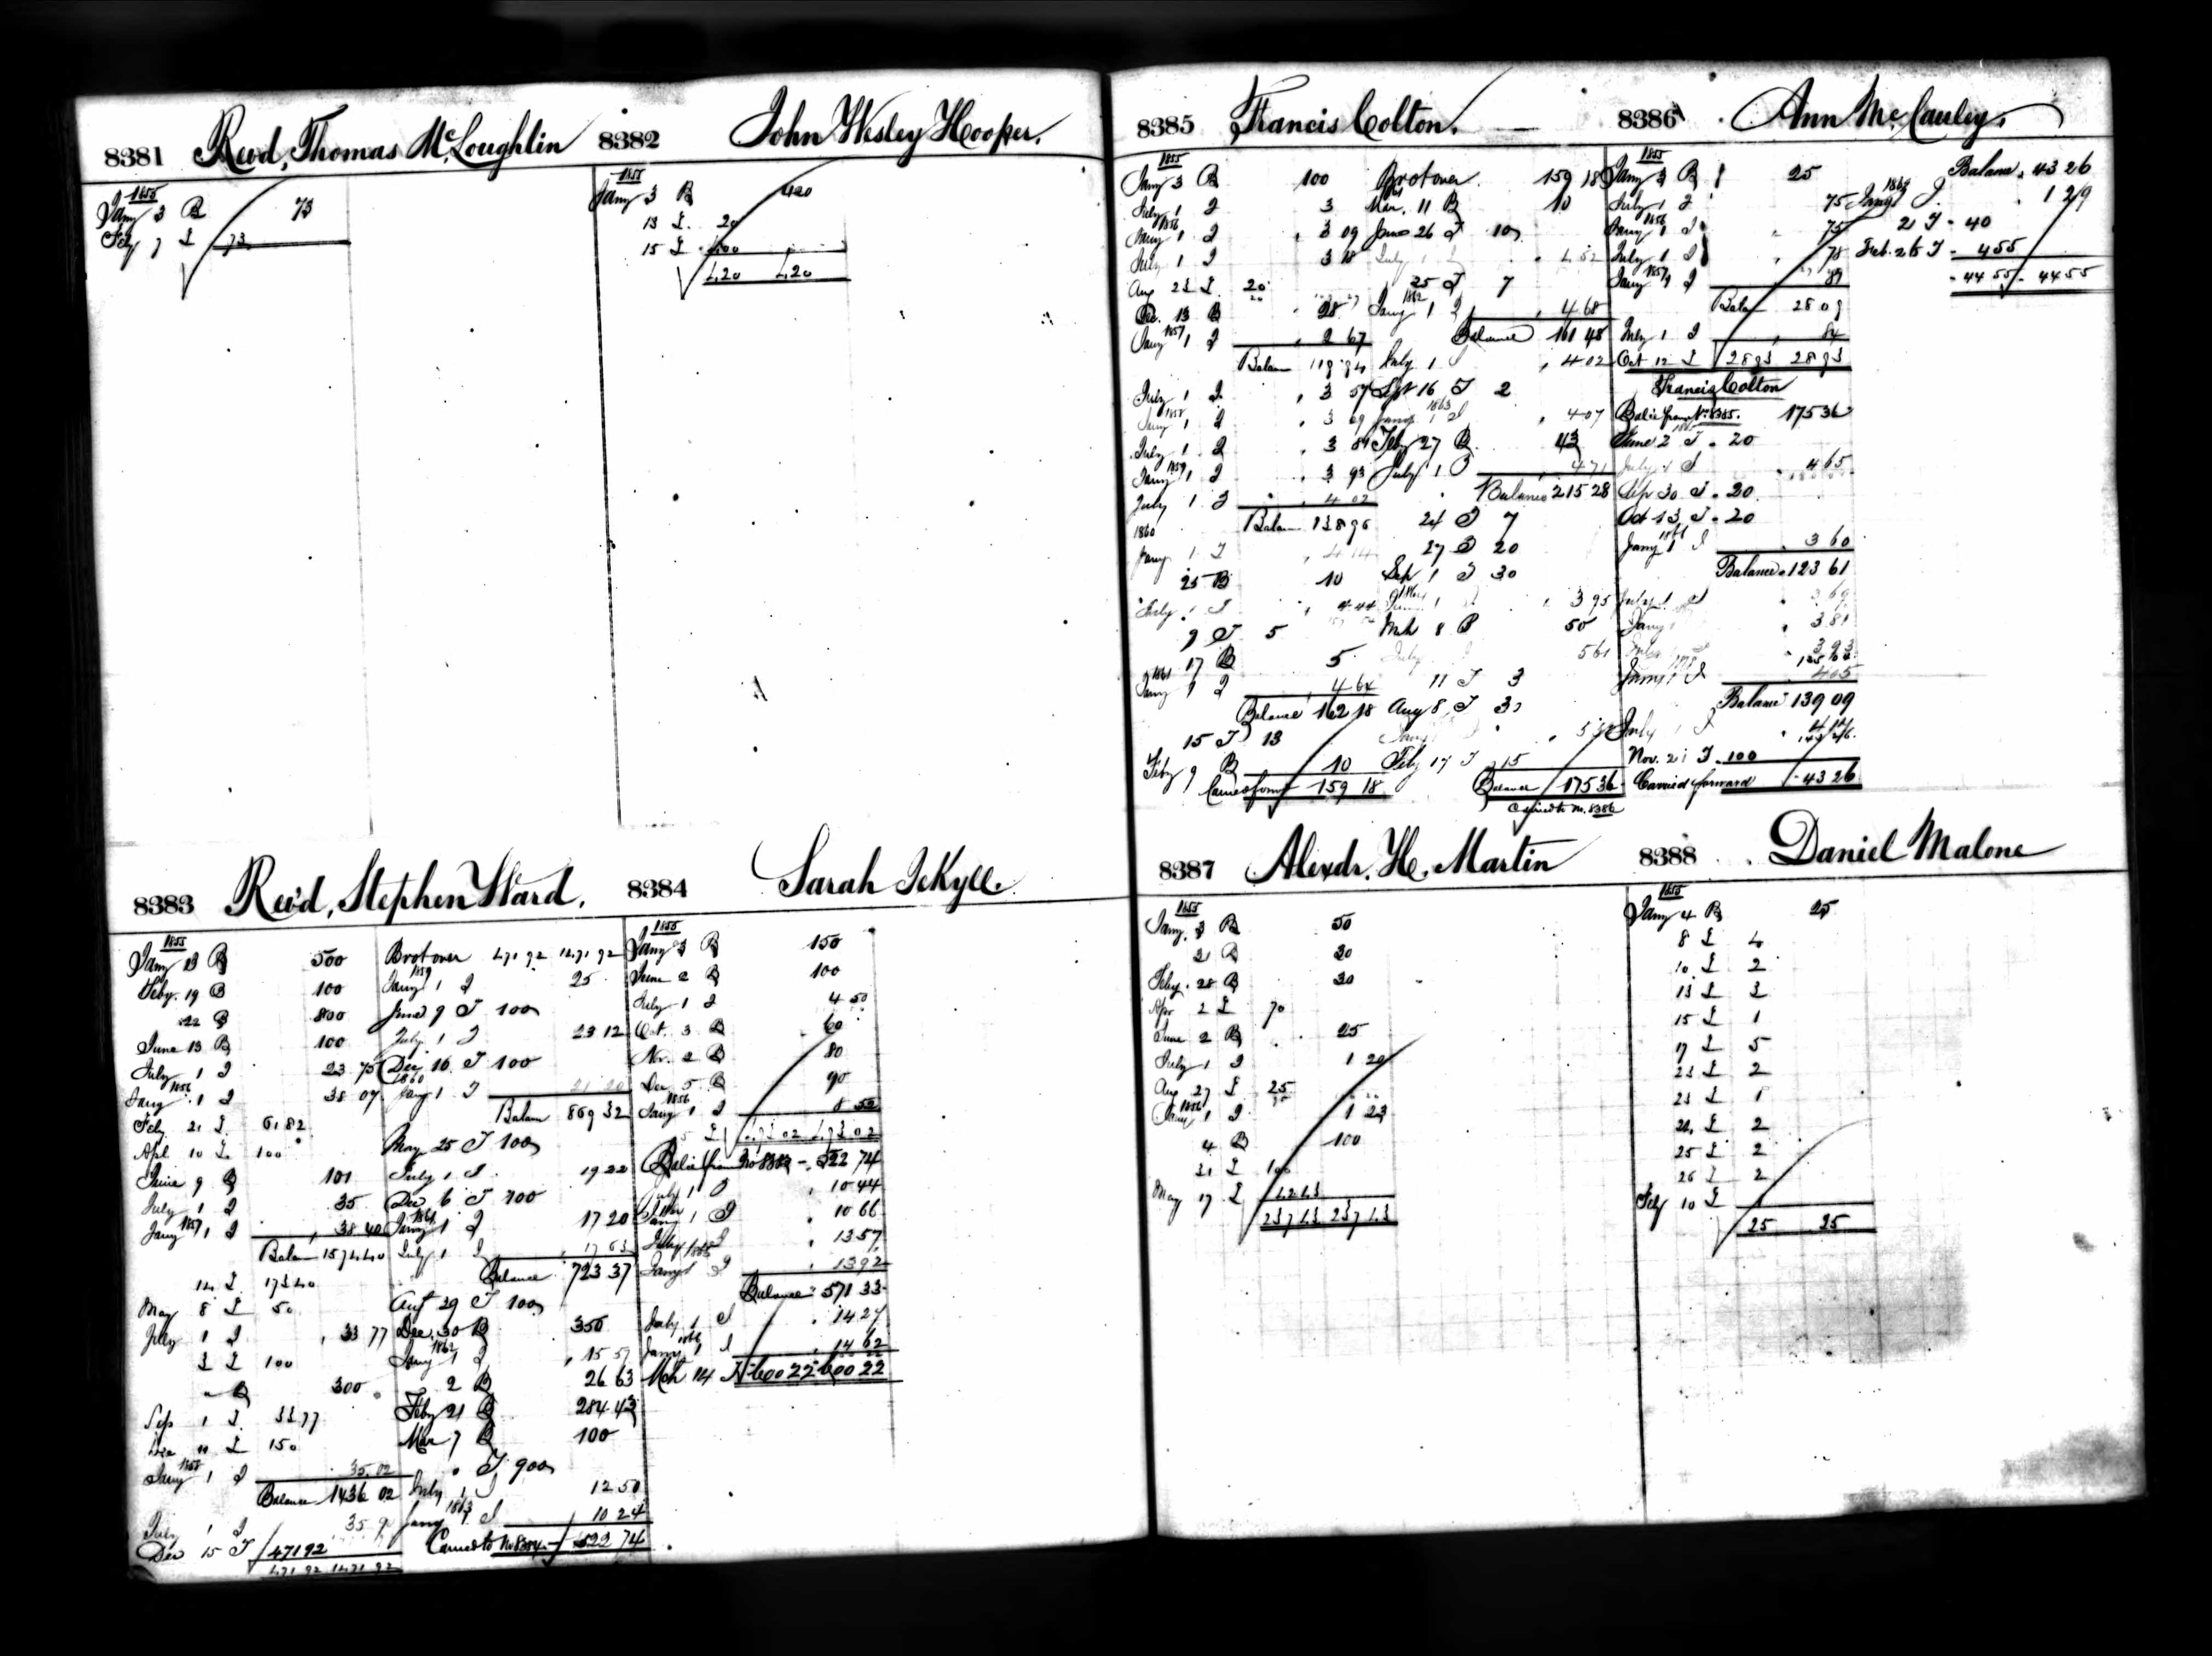 8381 Revd, Thomas McLoughlin
1855
Jany 3 B 73
Feby 7 L 73
8382 John Wesley Hooper.
1855
Jany 3 B 420
13 L. 20
15 L 400
420 420
8383 Revd, Stephen Ward.
1855
Jany 13 B 500
Feby. 19 B 100
22 B 800
June 13 B 100
July 1 I 23 75
1856
Jany 1 I 38 07
Feby 21 L 61 82
Apl 10 L 100
June 9 B 101
July 1 I 35
1857
Jany 1 I 38 40
Balan 1574 40
14 L 173 40
May 8 L 50
July 1 I 33 77
3 L 100
" B 300
Sep 1 L 33 77
L 150
1858
Jany 1 I 35.02
Balance 1436 02
July 1 I
Dec 15 T 471 92
471 92 1471 92
Brot over 471 92 1471 92
1859
Jany 1 I 25
June 9 T 100
July 1 I 23 12
Dec 16 T 100
1860
Jany 1 I 21 20
Balan 869 32
May 25 T 100
July 1 I 19 22
Dec 6 T 200
1861
Jany 1 I 17 20
July 1 I 17 63
Balance 723 37
Augt 29 T 100
Dec. 30 B 350
1862
Jany 1 I 15 57
2 B 26 63
Feby 21 B 284 43
Mar 7 B 100
" T 900
July 1 I 12 50
1863
Jany 1 I 10 24
Carried to No 8384 522 74
8384 Sarah Jekyll.
1855
Jany 3 B 150
June 2 B 100
July 1 I 4 50
Oct. 3 B 60
Nov. 2 B 80
Dec 5 B 90
1856
Jany 1 I 8 52
5 L 493 02 493 02
Balce from No 8383 - 522 74
July 1 I 10 44
Jany 1 I 10 66
July 1 I 13 57
1865
Jany 1 I 13 92
Balance 571 33
July 1 I 14 27
1866
Jany 1 I 14 62
Mch 14 T 600 22 600 22
8385 Francis Colton.
1855
Jany 3 B 100
July 1 I 3
1856
Jany 1 I 3 09
July 1 I 3 18
Aug 23 L 20
Dec. 13 B 28
1857
Jany 1 I 2 67
Balan 119 94
July 1 I 3 57
1858
Jany 1 I 3 69
July 1 I 3 81
1859
Jany 1 I 3 93
July 1 I 4 02
Balan 138 96
1860
Jany 1 I 4 14
25 B 10
July 1 I 4 44
9 T 5
17 B 5
1861
Jany 1 I 4 64
Balance 162 18
15 T 13
Feby 9 B 10
Carried forwd 159 18
Brot over 159 18
Mar. 11 B 10
June 26 T 10
July 1 I 4 52
25 T 7
1862
Jany 1 I 4 68
Balance 161 48
July 1 I 4 02
Sept 16 T 2
1863
Jany 1 I 4 07
Feby 27 B 43
July 1 I 4 71
Balance 215 28
24 T 7
27 T 20
Sep 1 T 30
1864
Jany 1 I 3 95
Mch 8 B 50
July 1 I 5 61
11 T 3
Aug 8 T
Jany
Feby 17 T 15
Balance 175 36
Carried to No. 8386
8386 Ann McCauley.
1855
Jany 3 B 25
July 1 I 75
1856
Jany 1 I 75
July 1 I 78
1857
Jany 1 I 81
Balan 28 09
July 1 I 84
Oct 12 L 28 93 28 93
Francis Colton
Balce from No. 8385. 175 36
1865
June 2 T 20
July 1 I 4 65
Sep 30 T 20
Oct 13 T 20
1866
Jany 1 I 3 60
Balance 123 61
July 1 I 3 69
Jany 3 81
July 3 93
1868
Jany 1 I 4 05
Balance 139 09
July 1 I
Nov. 21 T 100
Carried forward 43 26
Balance 43 26
1869
Jany I 1 29
2 T 40
Feb. 26 T 4 55
44 55 44 55
8387 Alexdr. H. Martin
1855
Jany. 3 B 50
21 B 20
Feby. 28 B 30
Apr 2 L 70
June 2 B 25
July 1 I 1 20
Aug 27 L 25
1856
Jany 1 I 1 23
4 B 100
31 L 100
May 17 L 42 43
237 43 237 43
8388 Daniel Malone
1855
Jany 4 B 25
8 L 4
10 L 2
13 L 3
15 L 1
17 L 5
23 L 2
23 L 1
24 L 2
25 L 2
26 L 2
Feby 10 L 1
25 25